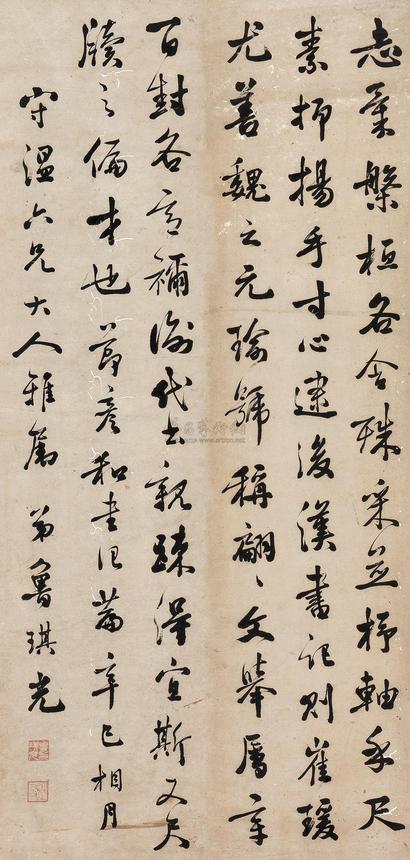 志氣槃桓各含殊采並杼軸乎尺
素抑揚乎寸心逮後漢書記則崔瑗
尤善魏之元瑜號稱翩〻文舉屬章
百封各意禰衡代書親疎得宜斯又尺
牘之偏才也節彥和書記篇辛巳相月
守溫六兄大人雅屬 弟魯琪光